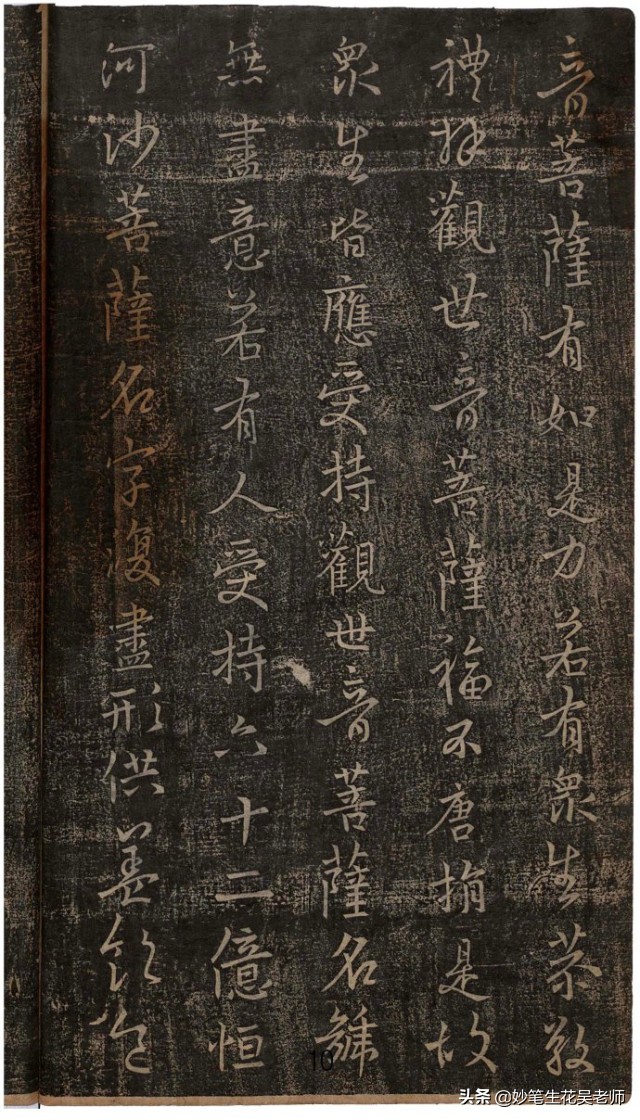 音菩薩有如是力若有眾生恭敬
禮拜觀世音菩薩福不唐捐是故
眾生皆應受持觀世音菩薩名號
無盡意若有人受持六十二億恒
河沙菩薩名字復盡形供養飲食
10
头条 @妙笔生花吴老师